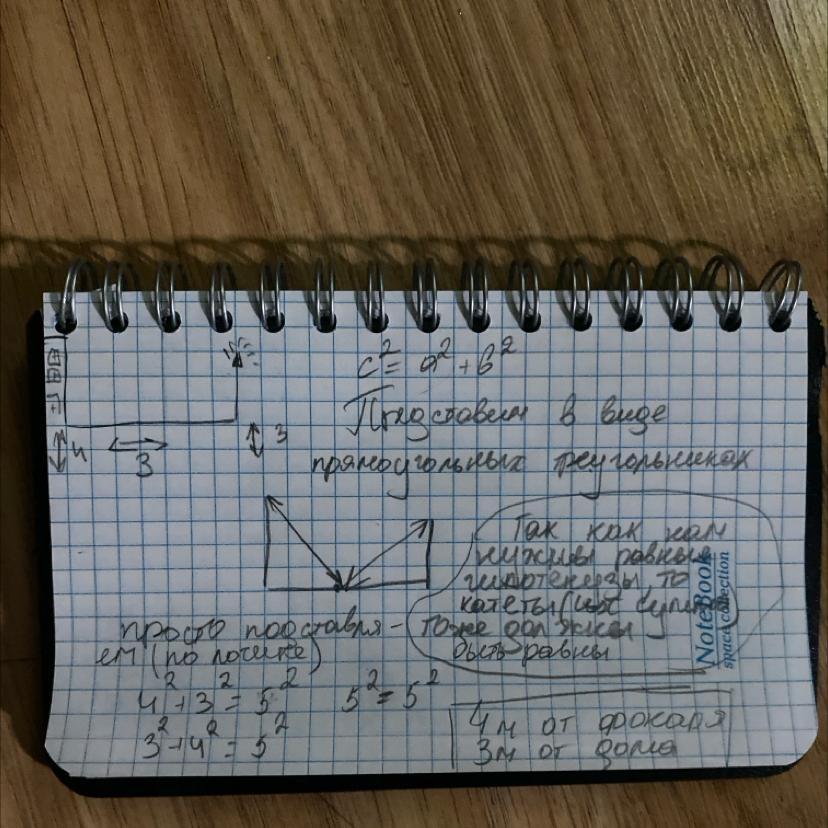 c² = a² + b²
Представим в виде
прямоугольных треугольниках
4
3
3
Так как нам
нужны равные
гипотенузы то
катеты (их сумма)
тоже должны
быть равны
просто подставля-
ем (по логике)
4² + 3² = 5²
5² = 5²
3² + 4² = 5²
4м от фонаря
3м от дома
NoteBook
space collection